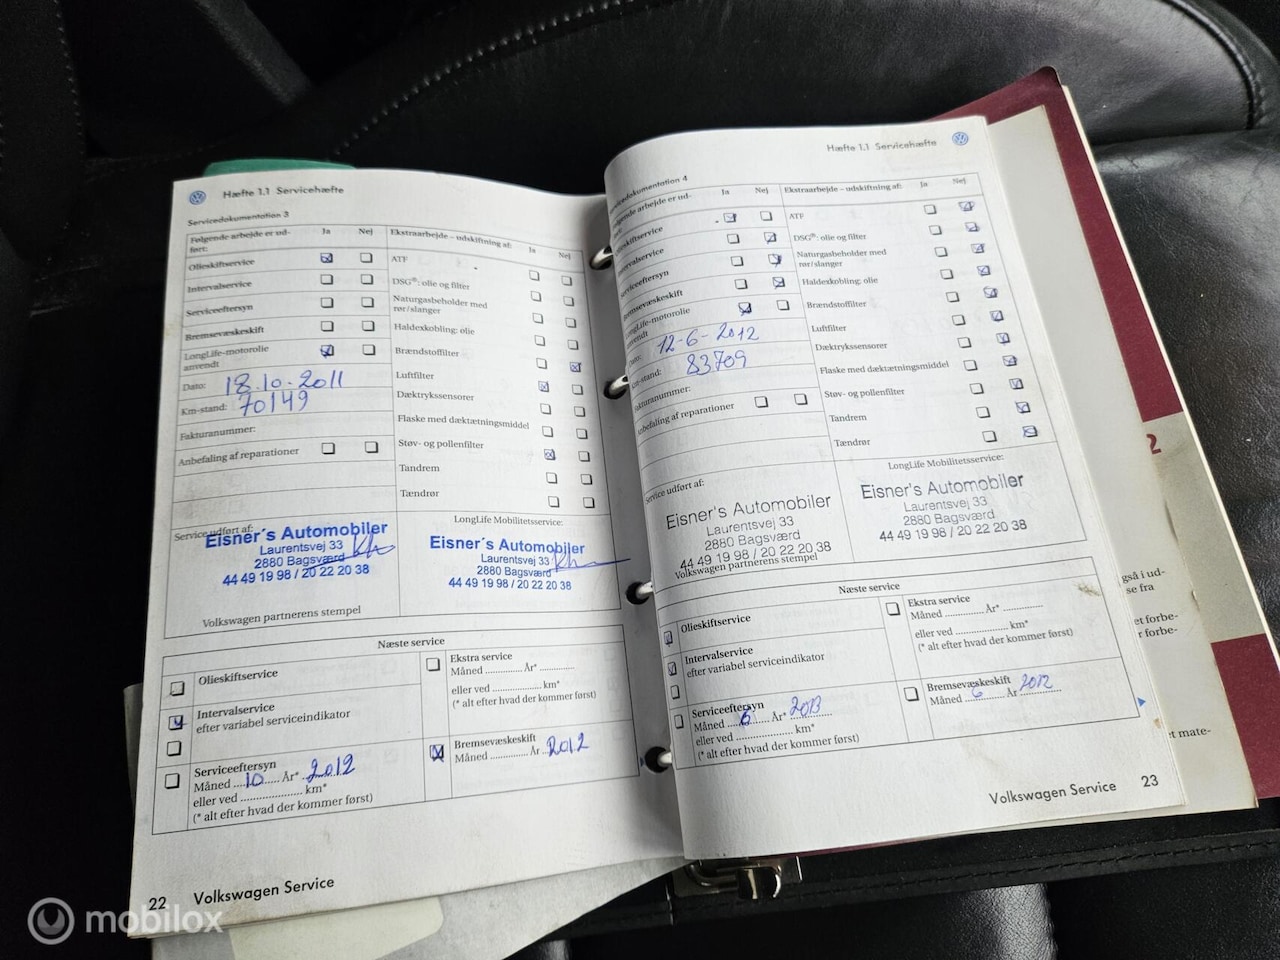 Hæfte 1.1 Servicehæfte
Servicedokumentation 3
Følgende arbejde er ud-
ført:
Ja
Nej
Olieskiftservice
Intervalservice
Serviceeftersyn
Bremsevæskeskift
LongLife-motorolie
anvendt
Dato: 18.10.2011
Km-stand: 70149
Fakturanummer:
Anbefaling af reparationer
Ekstraarbejde – udskiftning af:
Ja
Nej
ATF
DSG®: olie og filter
Naturgasbeholder med
rør/slanger
Haldexkobling: olie
Brændstoffilter
Luftfilter
Dæktrykssensorer
Flaske med dæktætningsmiddel
Støv- og pollenfilter
Tandrem
Tændrør
Service udført af:
Eisner's Automobiler
Laurentsvej 33
2880 Bagsværd
44 49 19 98 / 20 22 20 38
Volkswagen partnerens stempel
LongLife Mobilitetsservice:
Eisner's Automobiler
Laurentsvej 33
2880 Bagsværd
44 49 19 98 / 20 22 20 38
Næste service
Olieskiftservice
Intervalservice
efter variabel serviceindikator
Serviceeftersyn
Måned 10 År* 2012
eller ved .................... km*
(* alt efter hvad der kommer først)
Ekstra service
Måned ............ År* ............
eller ved .................... km*
(* alt efter hvad der kommer først)
Bremsevæskeskift
Måned ............ År 2012
22 Volkswagen Service
Hæfte 1.1 Servicehæfte
Servicedokumentation 4
Følgende arbejde er ud-
Ja
Nej
Olieskiftservice
Intervalservice
Serviceeftersyn
Bremsevæskeskift
LongLife-motorolie
anvendt
Dato: 12-6-2012
Km-stand: 83709
Fakturanummer:
Anbefaling af reparationer
Ekstraarbejde – udskiftning af:
Ja
Nej
ATF
DSG®: olie og filter
Naturgasbeholder med
rør/slanger
Haldexkobling: olie
Brændstoffilter
Luftfilter
Dæktrykssensorer
Flaske med dæktætningsmiddel
Støv- og pollenfilter
Tandrem
Tændrør
Service udført af:
Eisner's Automobiler
Laurentsvej 33
2880 Bagsværd
44 49 19 98 / 20 22 20 38
Volkswagen partnerens stempel
LongLife Mobilitetsservice:
Eisner's Automobiler
Laurentsvej 33
2880 Bagsværd
44 49 19 98 / 20 22 20 38
Næste service
Olieskiftservice
Intervalservice
efter variabel serviceindikator
Serviceeftersyn
Måned 6 År* 2013
eller ved .................... km*
(* alt efter hvad der kommer først)
Ekstra service
Måned ............ År* ............
eller ved .................... km*
(* alt efter hvad der kommer først)
Bremsevæskeskift
Måned 6 År 2012
Volkswagen Service 23
2
også i ud-
se fra
et forbe-
r forbe-
et mate-
mobilox